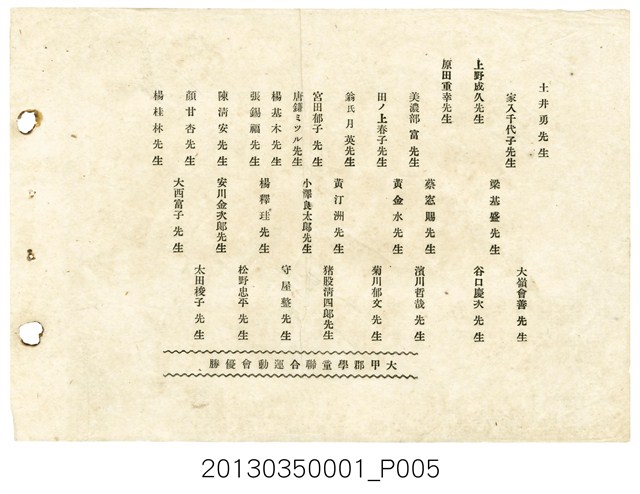 土井勇先生
大嶺會善先生
家入千代子先生
梁基盛先生
上野成久先生
谷口慶次先生
原田重幸先生
蔡窓賜先生
濱川哲哉先生
美濃部富先生
黃金水先生
菊川郁文先生
田ノ上春子先生
翁氏月英先生
黃汀洲先生
猪股清四郎先生
宮田郁子先生
小澤良太郎先生
唐鎌ミツル先生
守屋整先生
楊基木先生
楊釋珪先生
張錫福先生
松野忠平先生
陳清安先生
安川金次郎先生
太田稜子先生
顏甘杏先生
大西富子先生
楊桂林先生
大甲郡學童聯合運動會優勝
20130350001_P005